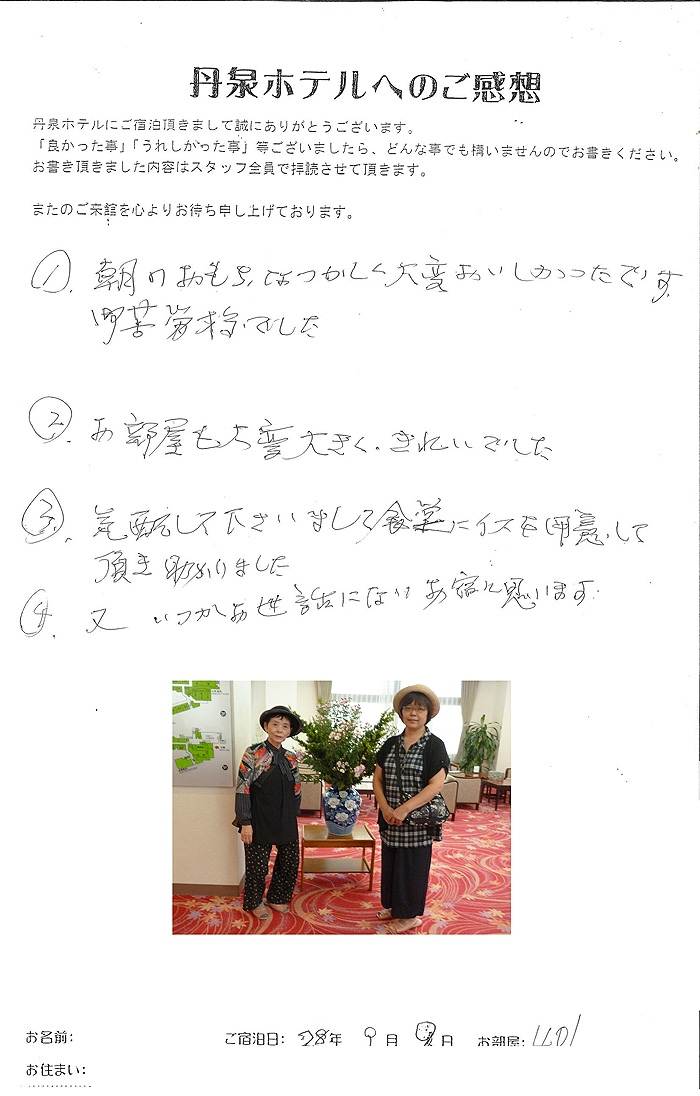 丹泉ホテルへのご感想
丹泉ホテルにご宿泊頂きまして誠にありがとうございます。
「良かった事」「うれしかった事」等ございましたら、どんな事でも構いませんのでお書きください。
お書き頂きました内容はスタッフ全員で拝読させて頂きます。
またのご来館を心よりお待ち申し上げております。
①. 朝のおもち、なつかしく大変おいしかったです
御苦労様でした
②. お部屋も大変大きく、きれいでした
③. 気配して下さいまして食堂にイスを用意して
頂き助かりました
④. 又いつかお世話になり お宿と思います
お名前: ご宿泊日: 28年 9月 日 お部屋:
お住まい: